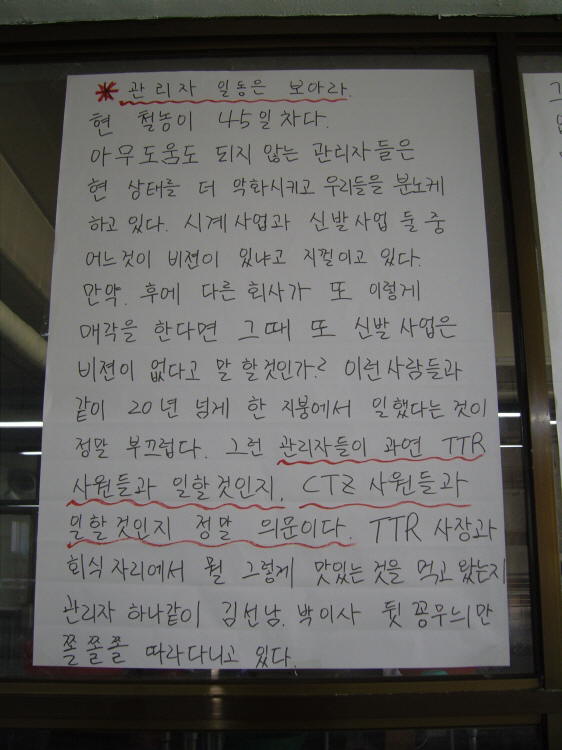 * 관리자 일동은 보아라.
현 철농이 45일차다.
아무도움도 되지 않는 관리자들은
현 상태를 더 악화시키고 우리들을 분노케
하고 있다. 시계사업과 신발사업 둘 중
어느것이 비젼이 있냐고 지껄이고 있다.
만약. 후에 다른 회사가 또 이렇게
매각을 한다면 그때 또 신발 사업은
비젼이 없다고 말 할것인가? 이런 사람들과
같이 20년 넘게 한 지붕에서 일했다는 것이
정말 부끄럽다. 그런 관리자들이 과연 TTR
사원들과 일할것인지. CTZ 사원들과
일할것인지 정말 의문이다. TTR 사장과
회식 자리에서 뭘 그렇게 맛있는 것을 먹고 왔는지
관리자 하나같이 김선남. 박이사 뒷 꽁무늬만
쫄쫄쫄 따라다니고 있다.